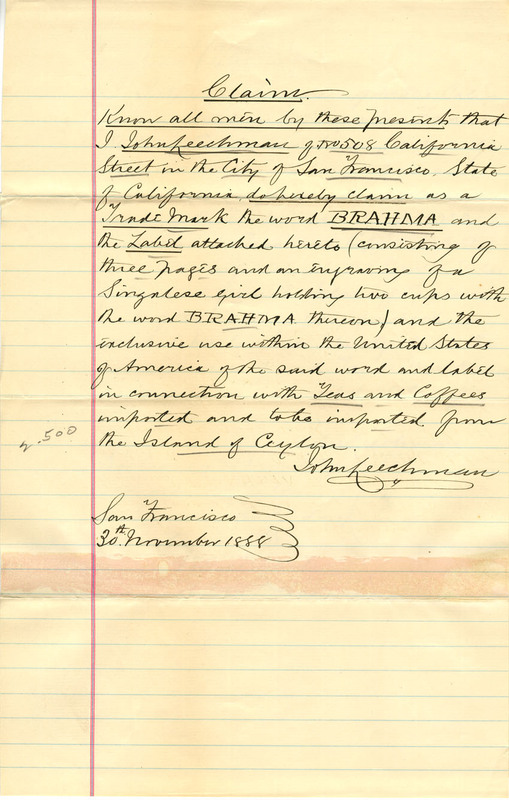 Claim.
Know all men by these presents that
I John Leechman of No 508 California
Street in the City of San Francisco, State
of California, do hereby claim as a
Trade Mark the word BRAHMA and
the Label attached hereto (consisting of
three pages and an engraving of a
Singalese Girl holding two cups with
the word BRAHMA thereon) and the
exclusive use within the United States
of America of the said word and label
in connection with Teas and Coffees
imported and to be imported from
the Island of Ceylon.
John Leechman
San Francisco
30th November 1888
500